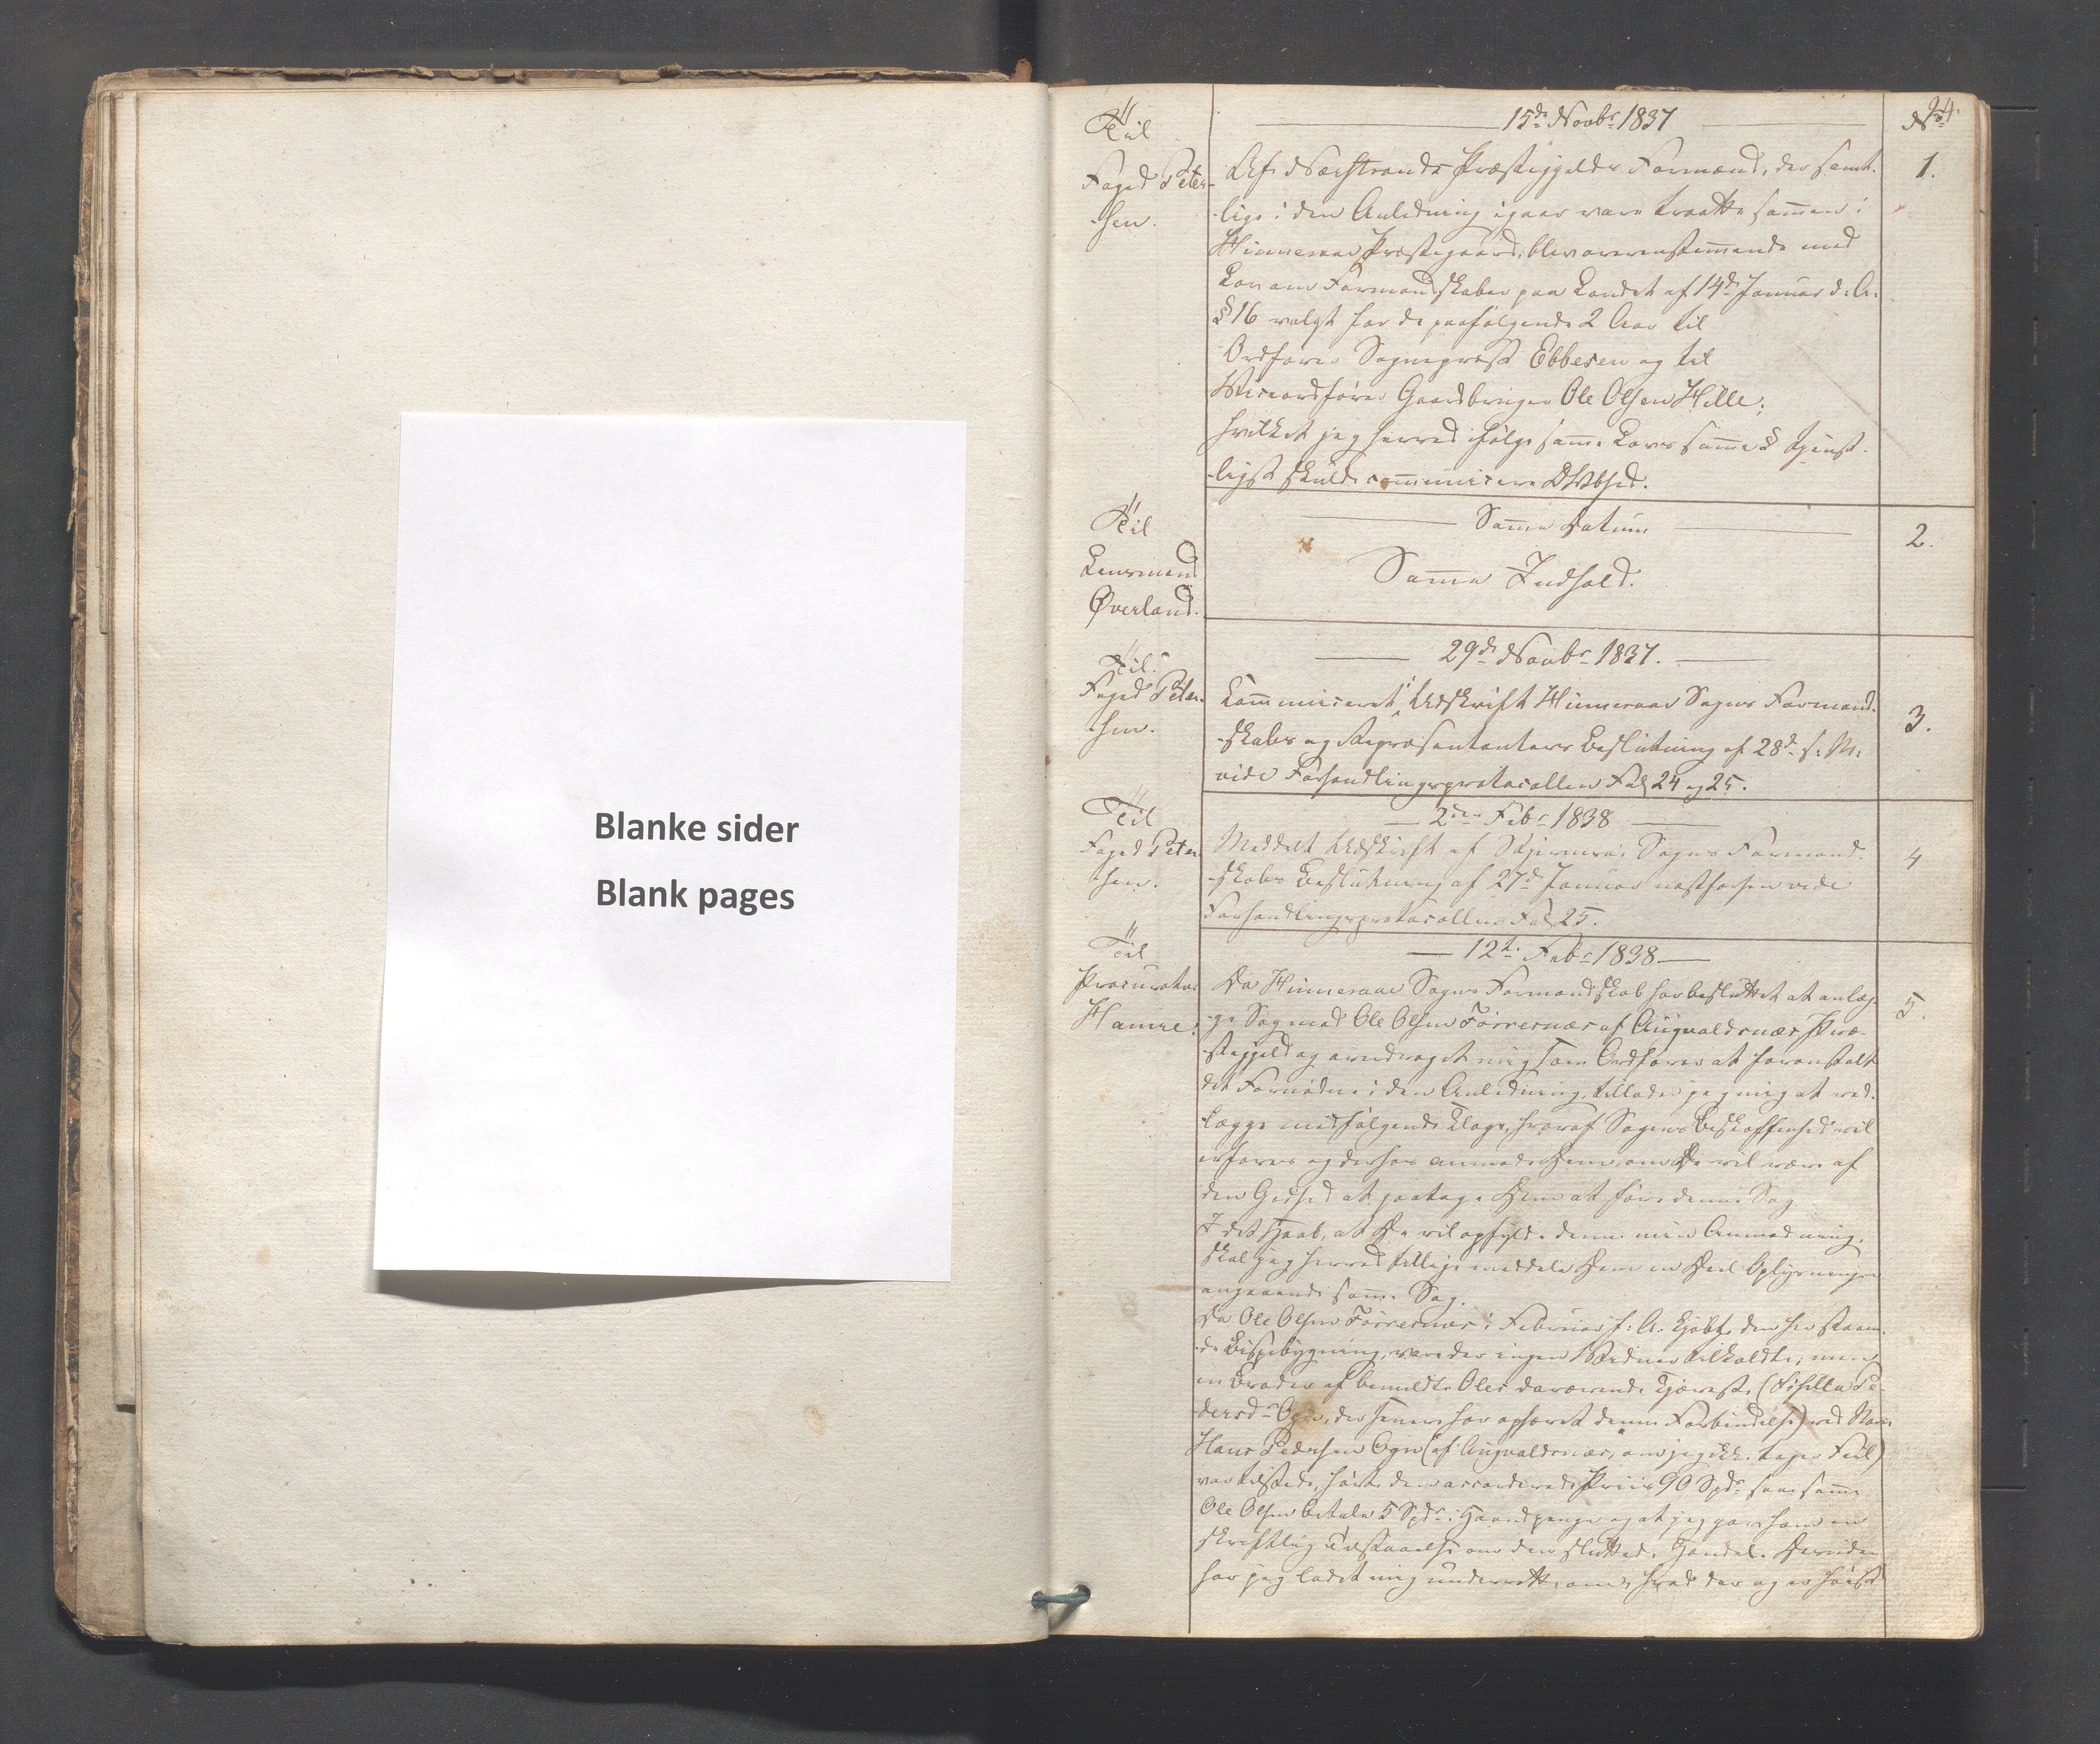 Blanke sider
Blank pages
24.
No
Til
Foged Peter-
sen.
15de Novbr 1837
1.
Af Nærstrands Præstegjelds Formænd, der samt-
lige i den Anledning igaar vare traadte sammen i
Hinneraae Præstegaard, blev overenstemmende med
Lov om Formandskaber paa Landet af 14de Januar d: A:
§ 16 valgt for de paafølgende 2 Aar til
Ordfører Sognepræst Ebbesen og til
Viceordfører Gaardbruger Ole Olsen Hille;
hvilket jeg herved ifølge samme Lovs samme § tjenst-
ligst skulde communicere
Til
Lensmand
Øverland.
Samme Datum
2.
Samme Indhold.
Til
Foged Peter-
sen.
29de Novbr 1837.
3.
Communiceret i Udskrift Hinneraae Sogns Formand-
skabs og Repræsentanters Beslutning af 28de s: M:
vide Forhandlingsprotocollen Fol 24 og 25.
Til
Foged Peter-
sen.
2den Febr 1838
4
Meddelt Udskrift af Sogns Formand-
skabs Beslutning af 27de Januar næstforhen vide
Forhandlingsprotocollen Fol 25.
Til
Procurator
Hamre.
12t. Febr 1838
5.
Da Hinneraae Sogns Formandskab har besluttet at anlæg-
ge Sag mod Ole Olsen Førresnæs af Augvaldsnæs Præ-
stegjeld og overdraget mig som Ordfører at foranstalt
det Fornødne i den Anledning, tillader jeg mig at ved-
lægge medfølgende Klage, hvoraf Sagens Beskaffenhed vil
erfares og derhos anmode Dem, om De vil være af
den Godhed at paatage Dem at føre denne Sag.
I det Haab, at De vil opfylde denne min Anmodning,
skal jeg herved tillige meddele Dem en Deel Oplysninger
angaaende samme Sag.
Da Ole Olsen Førresnæs i Februar f: A: kjøbte den her staaen-
de Bispebygning, vare der ingen Vidner tilkaldte; men
en Broder af bemeldte Oles daværende Kjæreste (Sisilla Pe-
dersdr Ogne, der senere har ophævet denne Forbindelse) ved Navn
Hans Pedersen Ogne (af Augvaldsnæs, om jeg ikke tager Feil)
var tilstede, hørte den accorderede Priis 90 Spdr saae samme
Ole Olsen betale 5 Spdr i Haandpenge og at jeg gav ham en
skriftlig Tilstaaelse om den sluttede Handel. Desuden
har jeg ladet mig underrette om, hvad der og er høist